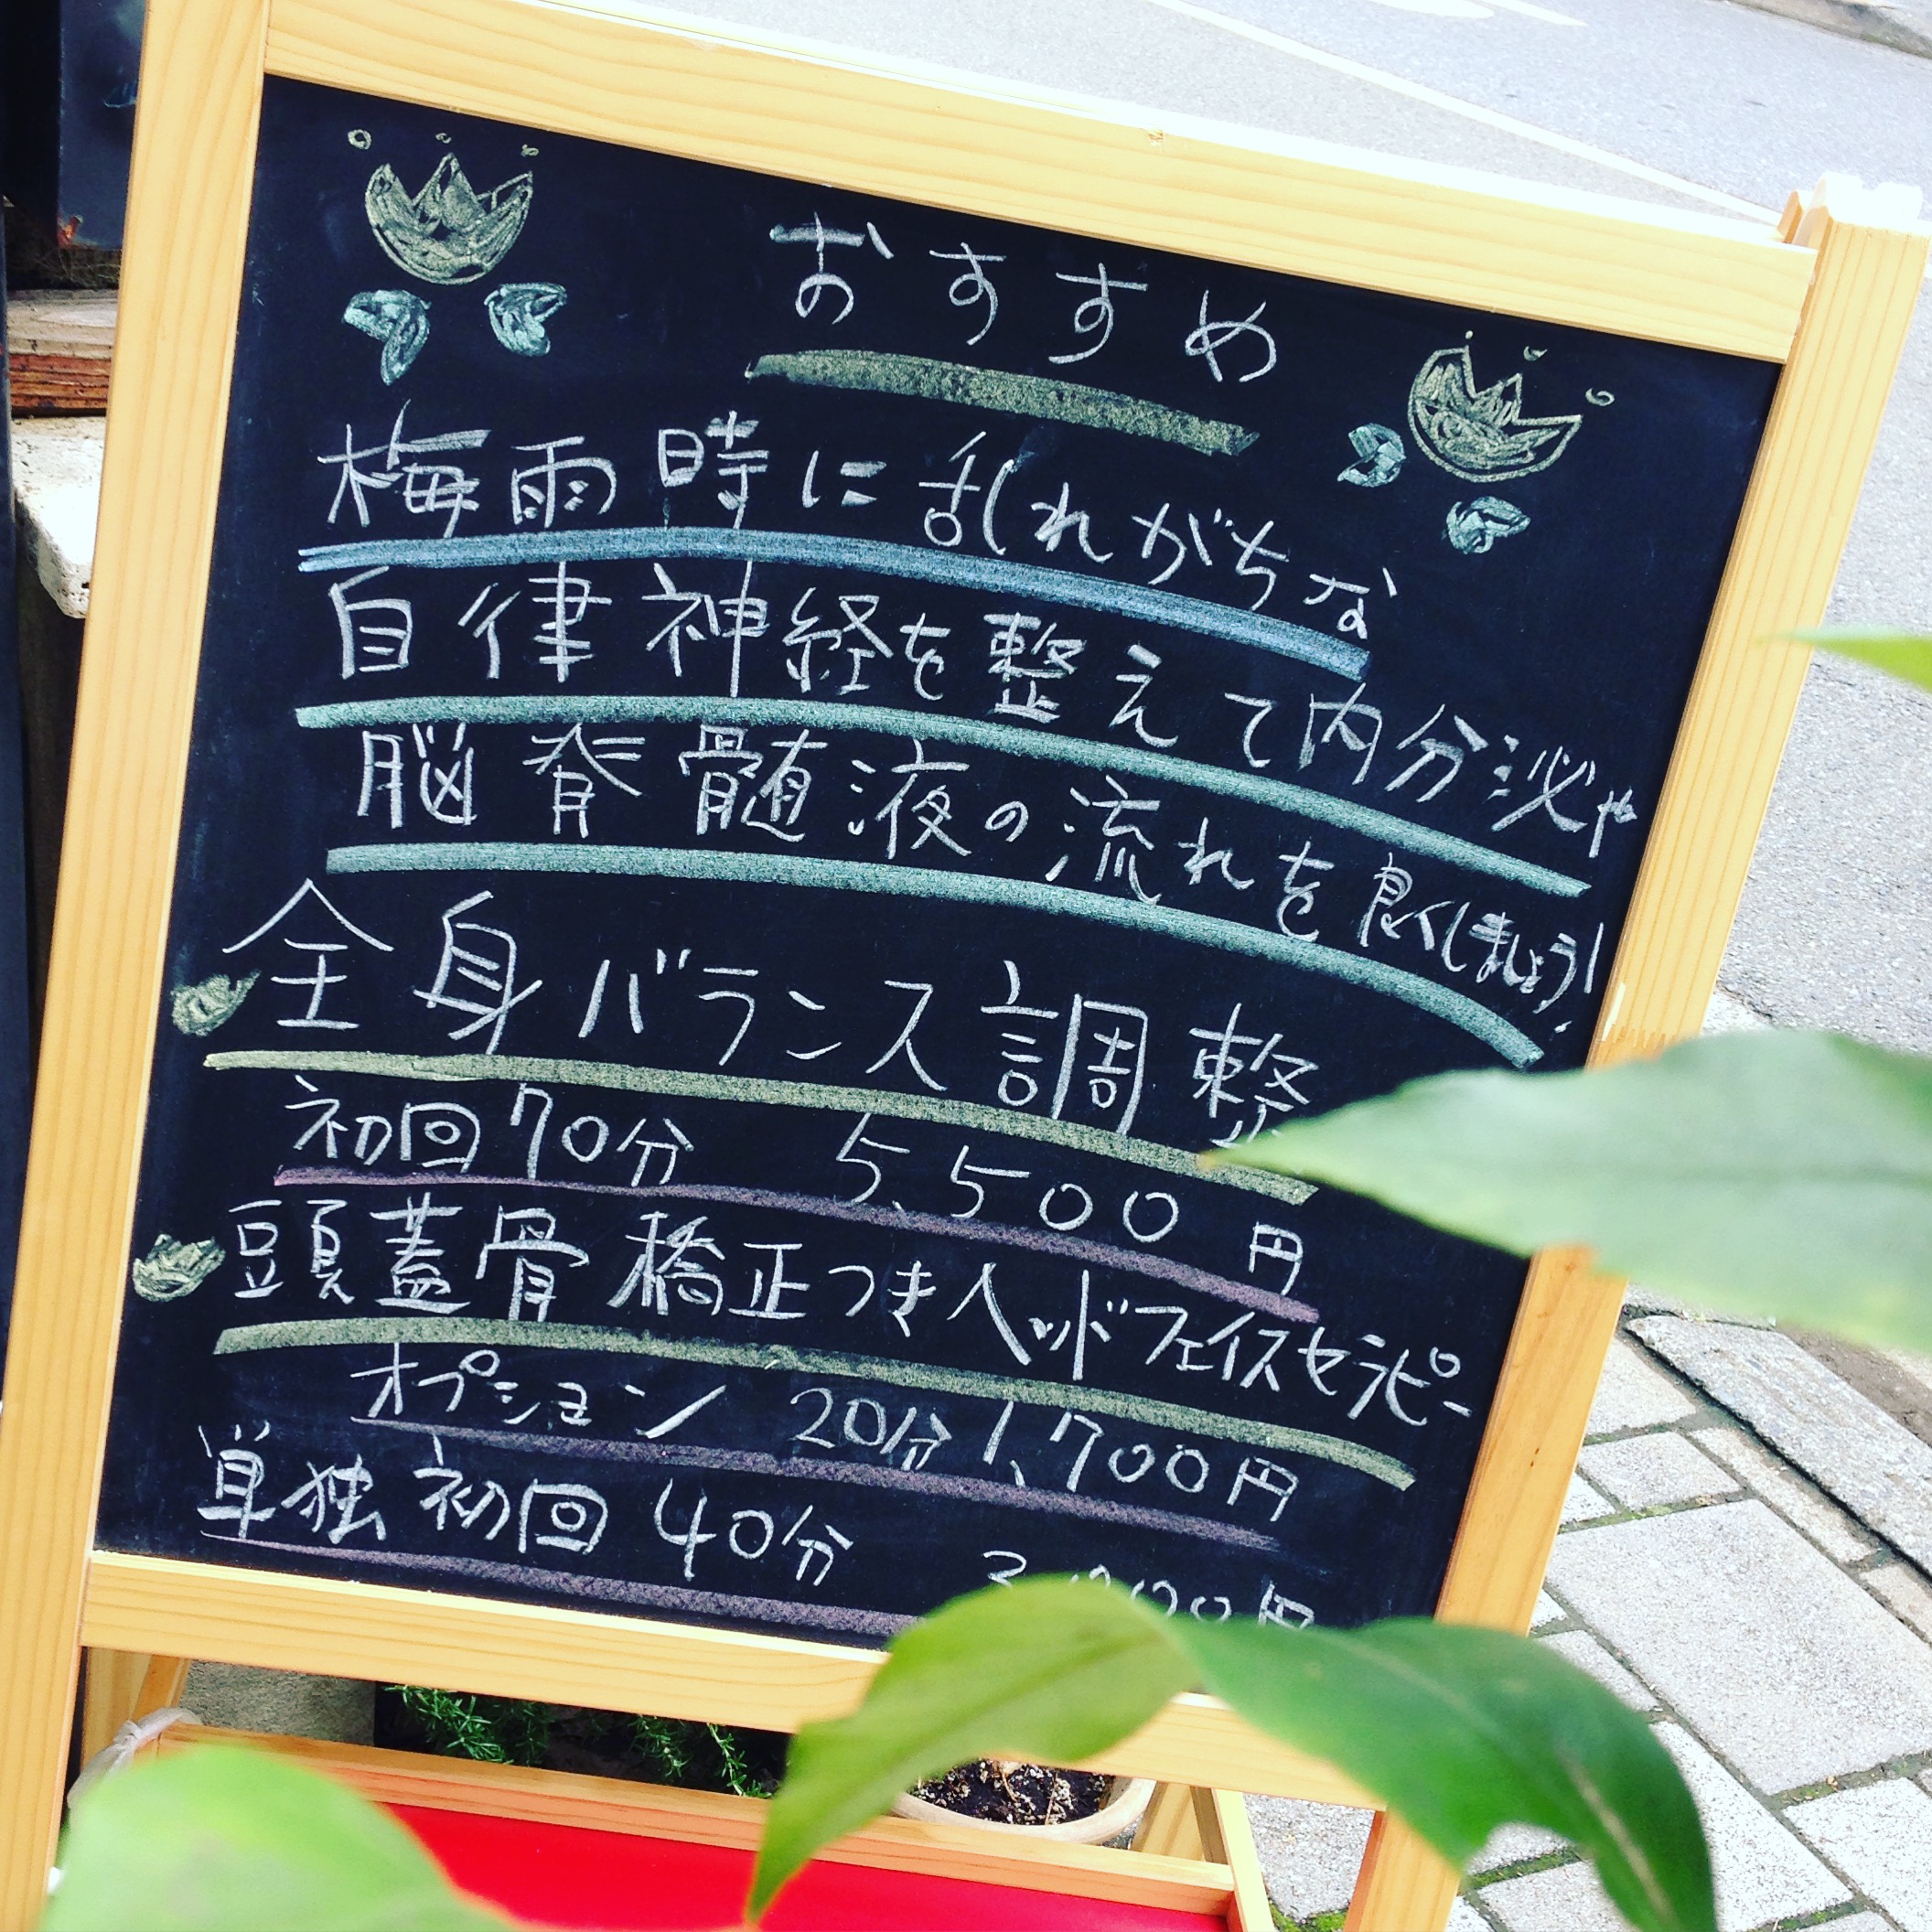 おすすめ
梅雨時に乱れがちな
自律神経を整えて内分泌や
脳脊髄液の流れを良くしましょう!
全身バランス調整
初回70分 5,500円
頭蓋骨矯正つきヘッドフェイスセラピー
オプション 20分 1,700円
単独初回 40分